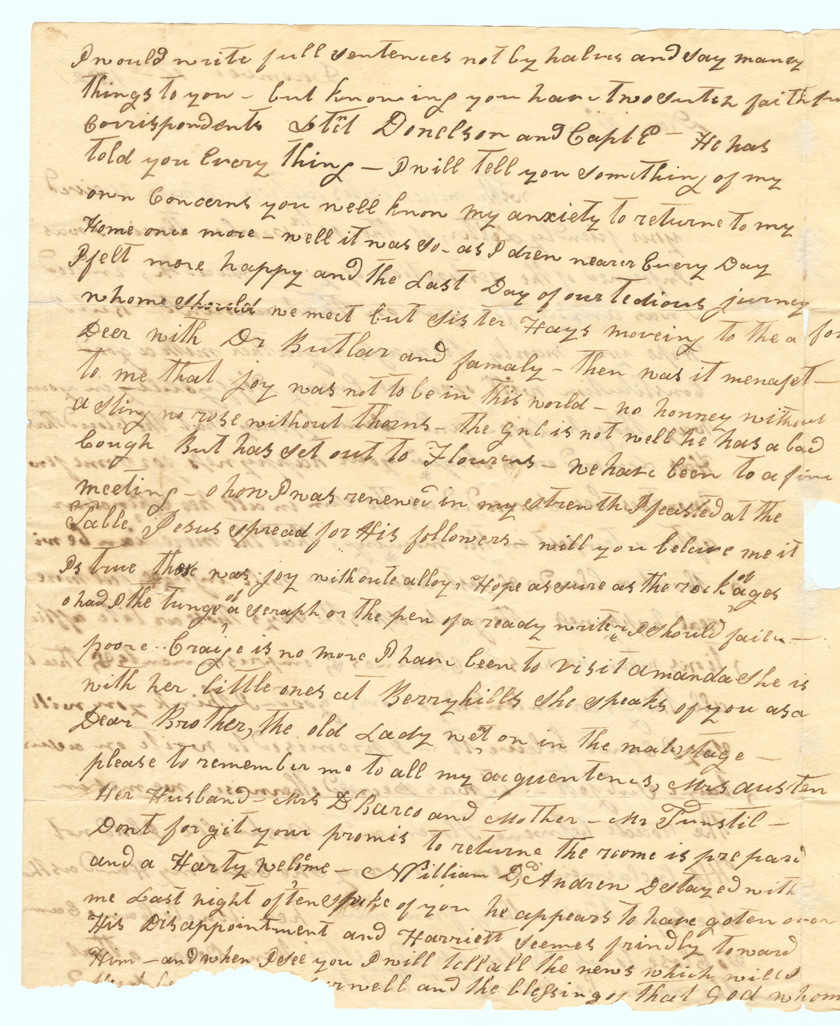 I would write full sentences not by halves and say maney
things to you - but knowing you have two sutch faithfu
Corrispondents Lttt Donelson and Capt E - He has
told you Every thing - I will tell you something of my
own Concerns you well know my anxiety to returne to my
Home once more - well it was so - as I drew nearer Every Day
I felt more happy and the Last Day of our tedious journey
whome should we meet but sister Hays moveing to the a for
Deer with Dr Butlar and famaly - then was it menafest -
to me that joy was not to be in this world - no honney without
a sting no rose without thorns - the Gnl is not well he has a bad
Cough But has set out to Flourens - we have been to a fine
meeting - o how I was renewed in my strenth I feasted at the
Table Jesus spread for His followers - will you beleave me it
Is true thare was joy without alloy, Hope as sure as the rock of ages
o had I the tunge of a seraph or the pen of a ready writer, I should faile -
poore Craige is no more I have been to visit amanda she is
with her little ones at Berryhills she speaks of you as a
Dear Brother, the old Lady went on in the male stage -
please to remember me to all my acquentences, Mrs austen
Her Husband - Mrs D Barco and Mother - Mr Tunstil -
Dont forgit your promis to returne the roome is prepard
and a Harty welcome - William D, & Andrew Dstayed with
me Last night often spake of you he appears to have goten over
His Disappointment and Harriett seemes frindly toward
Him - and when I see you I will tell all the news which will
rwell and the blessing of that God whom